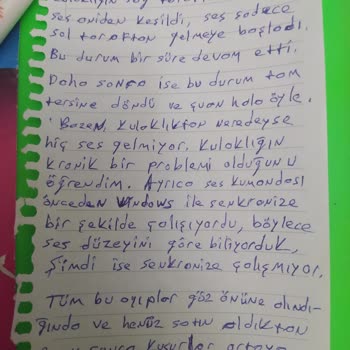 ses aniden kesildi, ses sadece
sol taraftan gelmeye başladı.
Bu durum bir süre devam etti.
Daha sonra ise bu durum tam
tersine döndü ve şuan hala öyle.
Bazen, kulaklıktan neredeyse
hiç ses gelmiyor. Kulaklığın
kronik bir problemi olduğunu
öğrendim. Ayrıca ses kumandası
önceden Windows ile senkronize
bir şekilde çalışıyordu, böylece
ses düzeyini göre biliyorduk,
Şimdi ise senkronize çalışmıyor.
Tüm bu ayıplar göz önüne alındı-
ğında ve henüz satın aldıktan
sonra kusurlar ortaya